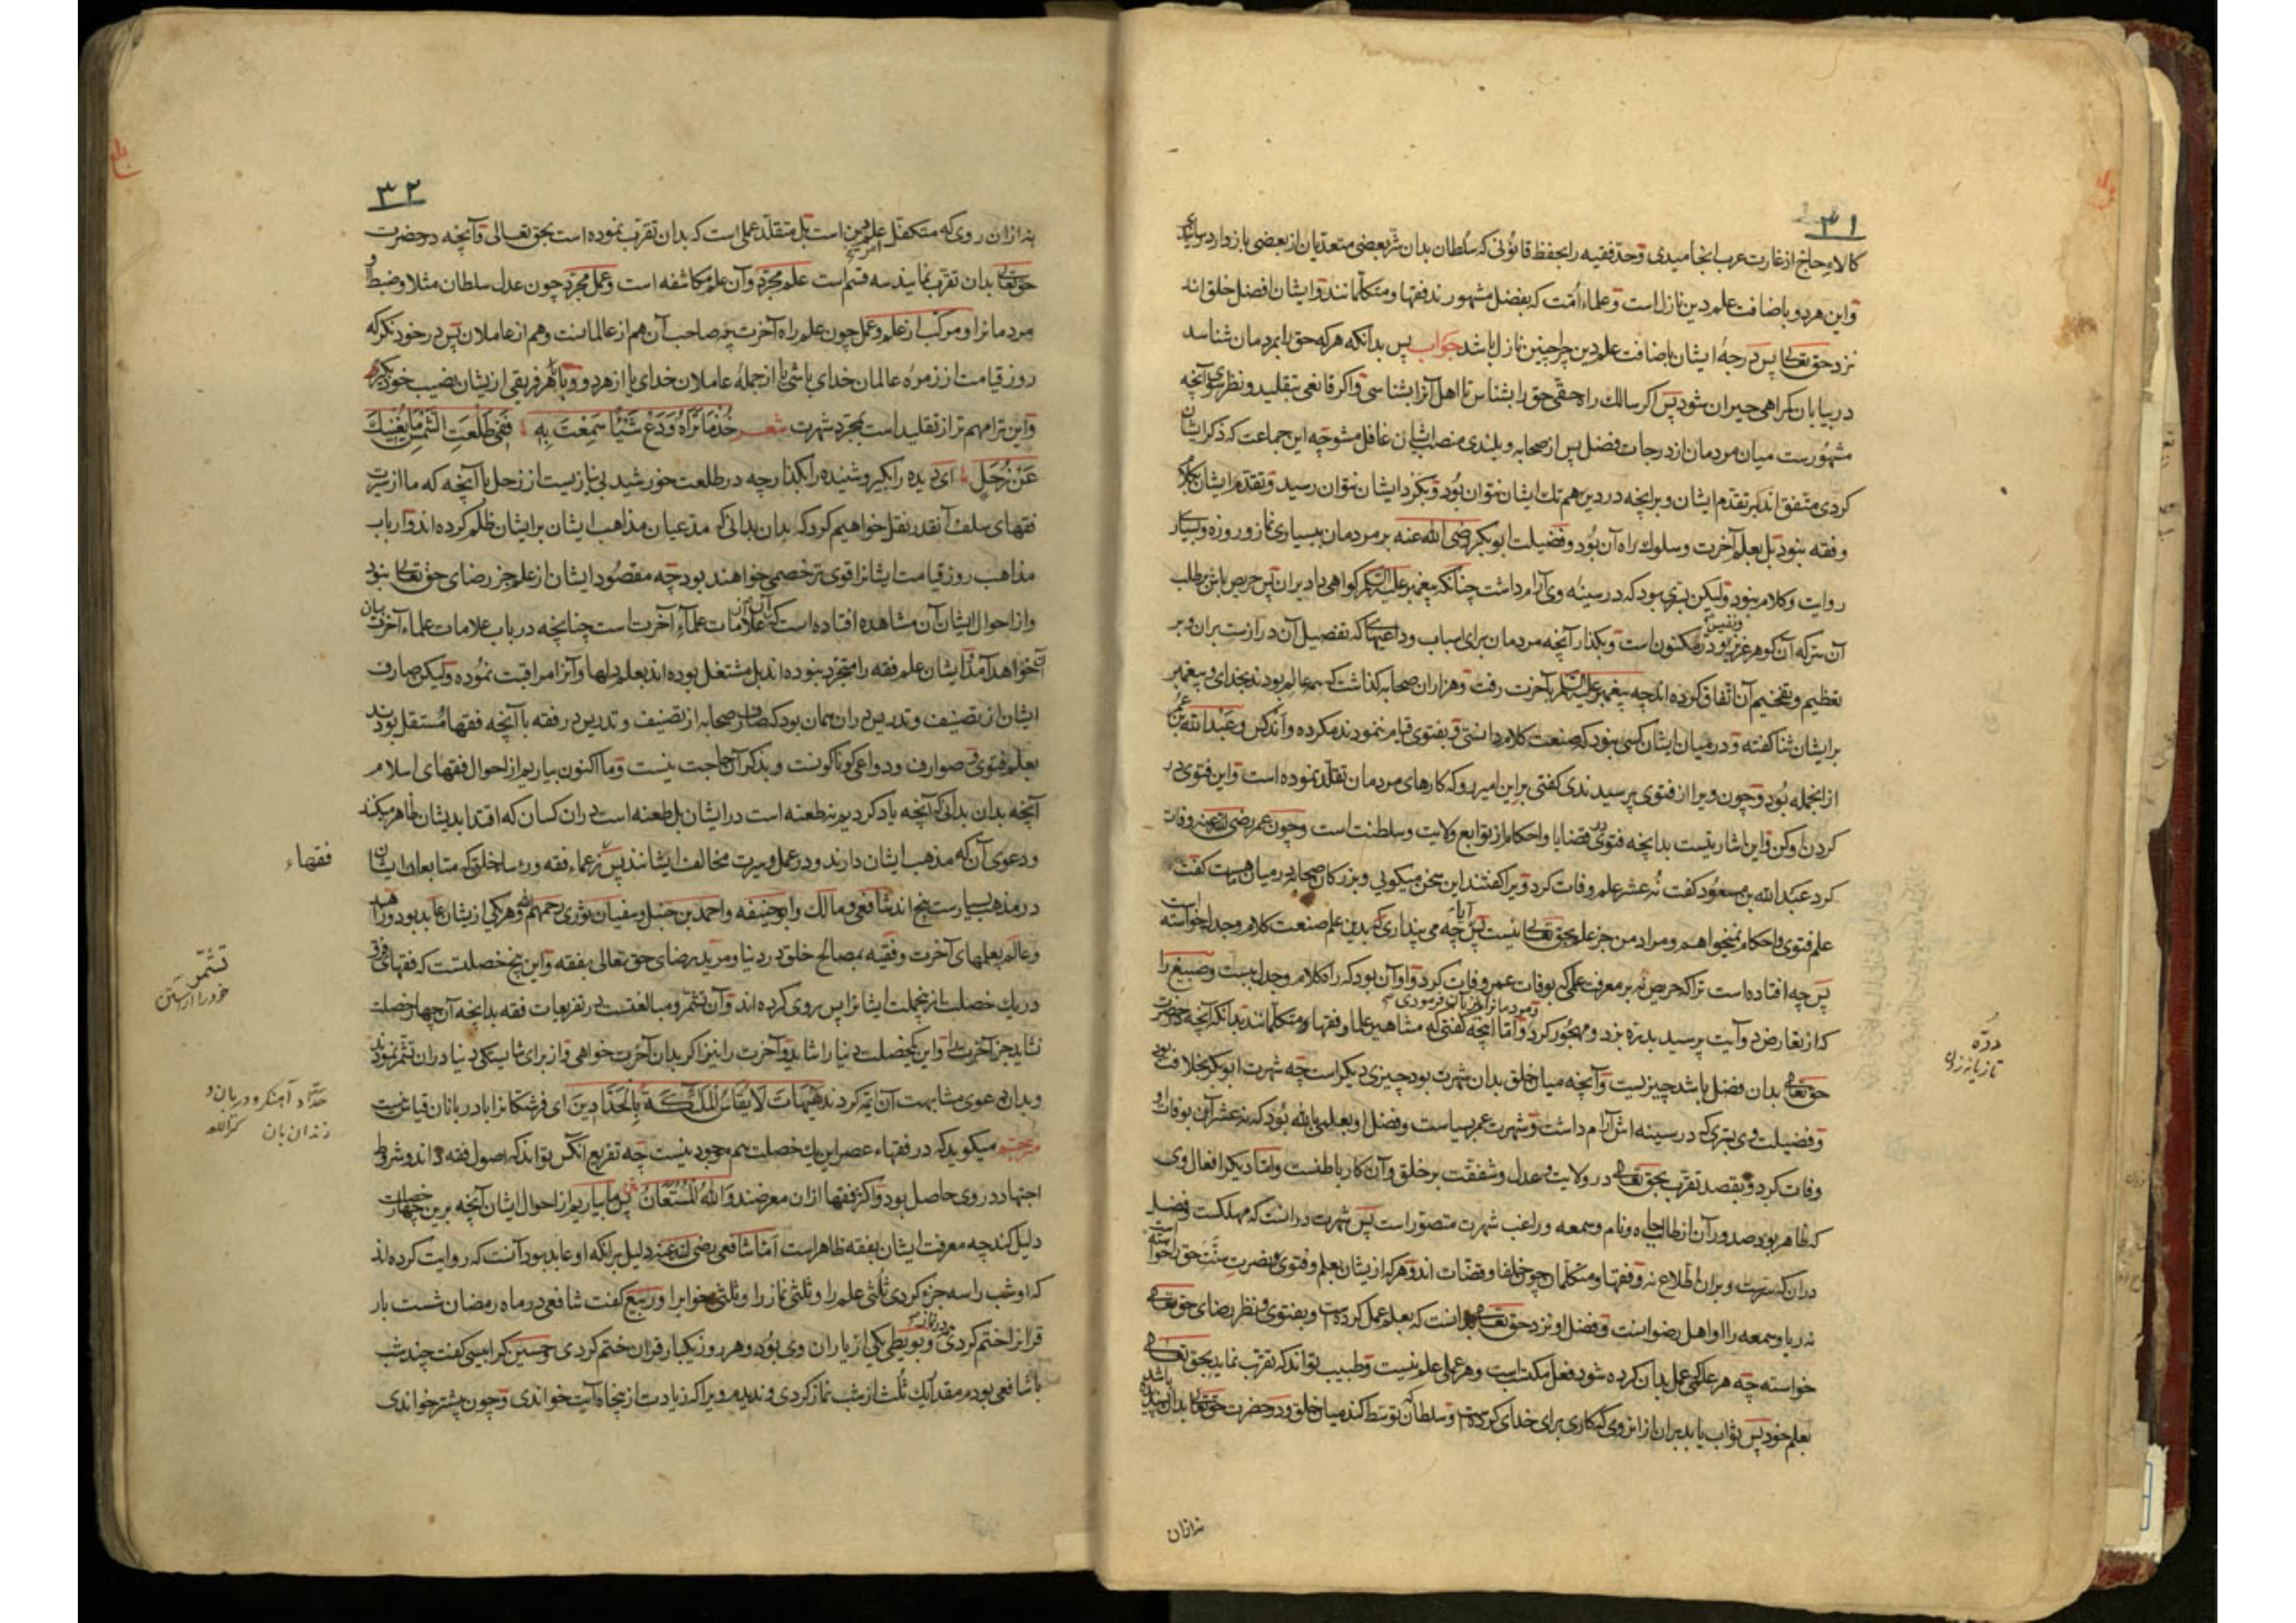 ۳۱
کالاء حاج از غارت عرب انجامیدی و حد فقیه را بحفظ قانونی که سلطان بدان شر بعضی متعدیان از بعضی باز دارد
واین هر دو باضافت علم دین نازل است و علماء امت که بفضل مشهورند فقها و متکلمانند و ایشان افضل خلق اند
نزد حق تعالی پس درجهٔ ایشان باضافت علم دین چرا چنین نازل باشد جواب پس بدانکه هر که حق را بمردمان شناسد
در بیابان گمراهی حیران شود پس اگر سالک راه حقی حق را بشناس تا اهل آنرا بشناسی و اگر قانعی بتقلید و نظر سوی آنچه
مشهورست میان مردمان از درجات فضل پس از صحابه و بلندی منصب ایشان غافل مشو چه این جماعت که ذکر ایشان
کردی متفق اند بر تقدم ایشان و برانچه در دین هم تک ایشان نتوان بود و بگرد ایشان نتوان رسید و تقدم ایشان بکلام
و فقه نبود بل بعلم آخرت و سلوک راه آن بود و فضیلت ابوبکر رضی الله عنه بر مردمان ببسیاری نماز و روزه و بسیاری
روایت و کلام نبود ولیکن بسری بود که در سینهٔ وی آرام داشت چنانکه پیغمبر علیه السلم گواهی داد بران پس حریص باش بر طلب
آن سر که آن گوهر عزیز و نفیس بود و در مکنون است و بگذار آنچه مردمان برای اسباب و داعیهای که تفصیل آن درازست بران و بر
تعظیم و تفخیم آن اتفاق کرده اند چه پیغمبر علیه السلم بآخرت رفت و هزاران صحابه گذاشت که همه عالم بودند بخدای و پیغمبر
بر ایشان ثنا گفته و در میان ایشان کسی نبود که صنعت کلام دانستی و بفتوی قیام ننمودند مگر ده و اند کس و عبدالله بن عمر
از انجمله بود و چون ویرا از فتوی پرسیدندی گفتی بر این امیر رو که کارهای مردمان تقلد نموده است و این فتوی در
گردن او کن و این اشارتیست بدانچه فتوی در قضایا و احکام از توابع ولایت و سلطنت است و چون عمر رضی الله عنه وفات
کرد عبدالله بن مسعود گفت نه عشر علم وفات کرد ویرا گفتند این سخن میگویی و بزرگان صحابه در میان ماست گفت
علم فتوی و احکام نمیخواهم و مراد من جز علم بحق تعالی نیست پس آیا چه می پنداری که بدین علم صنعت کلام و جدل خواسته است
پس چه افتاده است ترا که حریص نه بر معرفت علمی که بوفات عمر وفات کرد و او آن بود که راه کلام و جدل ببست و صبیغ را
که از تعارض دو آیت پرسید بدره بزد و مهجور کرد و مردمانرا فرمودی و اما آنچه گفتی که مشاهیر علما و فقها و متکلمانند بدانکه آنچه در حضرت
حق تعالی بدان فضل باشد چیزیست و آنچه میان خلق بدان شهرت بود چیزی دیگر است چه شهرت ابوبکر بخلافت بود
و فضیلت وی بسری که در سینه اش آرام داشت و شهرت عمر بسیاست و فضل او بعلم بالله بود که نه عشر آن بوفات او
وفات کرد و بقصد تقرب بحق تعالی در ولایت و عدل و شفقت بر خلق و آن کار باطنست و اما دیگر افعال وی
که ظاهر بود صدور آن از طالب جاه و نام و سمعه و راغب شهرت متصور است پس شهرت در انست که مهلکست و فضل
دران که سرست و بران اطلاع نه و فقها و متکلمان چون خلفا و قضات اند و هر که از یشان بعلم و فتوی و نصرت سنت حق خواسته است
نه ریا و سمعه را او اهل رضوانست و فضل او نزد حق تعالی بدانست که بعلم عمل کرده است و بفتوی و نظر رضای حق تعالی
خواسته چه هر علمی که عمل بدان کرده شود فعل مکتسب است و هر عملی علم نیست و طبیب تواند که تقرب نماید بحق تعالی
بعلم خود پس ثواب یابد بران از انروی که کاری برای خدای کرده است و سلطان که توسط کند میان خلق و در حضرت حق تعالی بدان پسندیده باشد
نه ازان
درّه
تازیانه زدن
۳۲
نه ازان روی که متکفل علم دین است بل متقلد عملی است که بدان تقرب نموده است بحق تعالی و آنچه در حضرت
حق تعالی بدان تقرب نمایند سه قسم است علم مجرد و آن علم مکاشفه است و عمل مجرد چون عدل سلطان مثلا و ضبط او
مردمانرا و مرکب از علم و عمل چون علم راه آخرت چه صاحب آن هم از عالمانست و هم از عاملان پس در خود نگر که
روز قیامت از زمرهٔ عالمان خدای باشی یا از جملهٔ عاملان خدای یا از هر دو و با هر فریقی ازیشان نصیب خود بگیر
و این ترا مهم تر از تقلید است بمجرد شهرت شعر خُذْ مَا تَرَاهُ وَدَعْ شَيْئًا سَمِعْتَ بِهِ فَفِي طَلْعَتِ الشَّمْسِ مَا يُغْنِيكَ
عَنْ زُحَلِ ای دیده را بگیر و شنیده را بگذار چه در طلعت خورشید بی نیازیست از زحل با آنچه که ما از سیرت
فقهای سلف آنقدر نقل خواهیم کرد که بدان بدانی که مدعیان مذاهب ایشان بر ایشان ظلم کرده اند و ارباب
مذاهب روز قیامت ایشانرا قوی تر خصمی خواهند بود چه مقصود ایشان از علم جز رضای حق تعالی نبود
و از احوال ایشان آن مشاهده افتاده است که آن از علامات علماء آخرت است چنانچه در باب علامات علماء آخرت بیان
آن خواهد آمد و ایشان علم فقه را متجرد نبوده اند بل مشتغل بوده اند بعلم دلها و آنرا مراقبت نموده ولیکن صارف
ایشان از تصنیف و تدریس دران همان بود که صارف صحابه از تصنیف و تدریس در فقه با آنچه فقها مستقل بودند
بعلم فتوی و صوارف و دواعی گوناگونست و بذکر آن حاجت نیست و ما اکنون بیاریم از احوال فقهای اسلام
آنچه بدان بدانی که آنچه یاد کردیم نه طعنه است در ایشان بل طعنه است دران کسان که اقتدا بدیشان ظاهر میکنند
و دعوی آن که مذهب ایشان دارند و در عمل و سیرت مخالف ایشانند پس زعماء فقه و رؤسا خلق که متابعان ایشان
در مذهب بسیارست پنج اند شافعی و مالک و ابو حنیفه و احمد بن حنبل و سفیان ثوری رحمهم الله و هر یکی ازیشان عابد بود و زاهد
و عالم بعلمهای آخرت و فقیه بمصالح خلق در دنیا و مرید رضای حق تعالی بفقه و این پنج خصلتست که فقهای فرق
در یک خصلت از پنج ملت ایشانرا پس روی کرده اند و آن تشمر و مبالغتست در تفریعات فقه بدانچه آن چهار خصلت
نشاید جز آخرت را و این یک خصلت دنیا را شاید و آخرت را نیز اگر بدان آخرت خواهی و از برای شایستگی دنیا دران تشمر نمودند
و بدان دعوی مشابهت آن ائمه کردند هَيْهَاتَ لَا يُقَاسُ الْمَلٰئِكَةُ بِالْحَدَّادِينَ ای فرشتگانرا با دربانان قیاس نیست
مترجم میگوید که در فقهاء عصر این یک خصلت هم موجود نیست چه تفریع آنکس تواند که اصول فقه داند و شروط
اجتهاد در وی حاصل بود و اکثر فقها ازان معرضند وَاللهُ الْمُسْتَعَانُ پس ما بیاریم از احوال ایشان آنچه برین چهار خصلت
دلیل کند چه معرفت ایشان بفقه ظاهر است اما شافعی رضی الله عنه دلیل برانکه او عابد بود آنست که روایت کرده اند
که او شب را سه جزء کردی ثلثی علم را و ثلثی نماز را و ثلثی خواب را و ربیع گفت شافعی در ماه رمضان شست بار
قرآن ختم کردی در نماز و بویطی یکی از یاران وی بود و هر روز یکبار قرآن ختم کردی و حسین کرابیسی گفت چند شب
با شافعی بودم مقدار یک ثلث از شب نماز کردی و ندیدم ویرا که زیادت از پنجاه آیت خواندی و چون بیشتر خواندی
فقهاء
تشمّر
خود را آراستن
حدّاد آهنگر و دربان و
زندان بان کنز اللغه